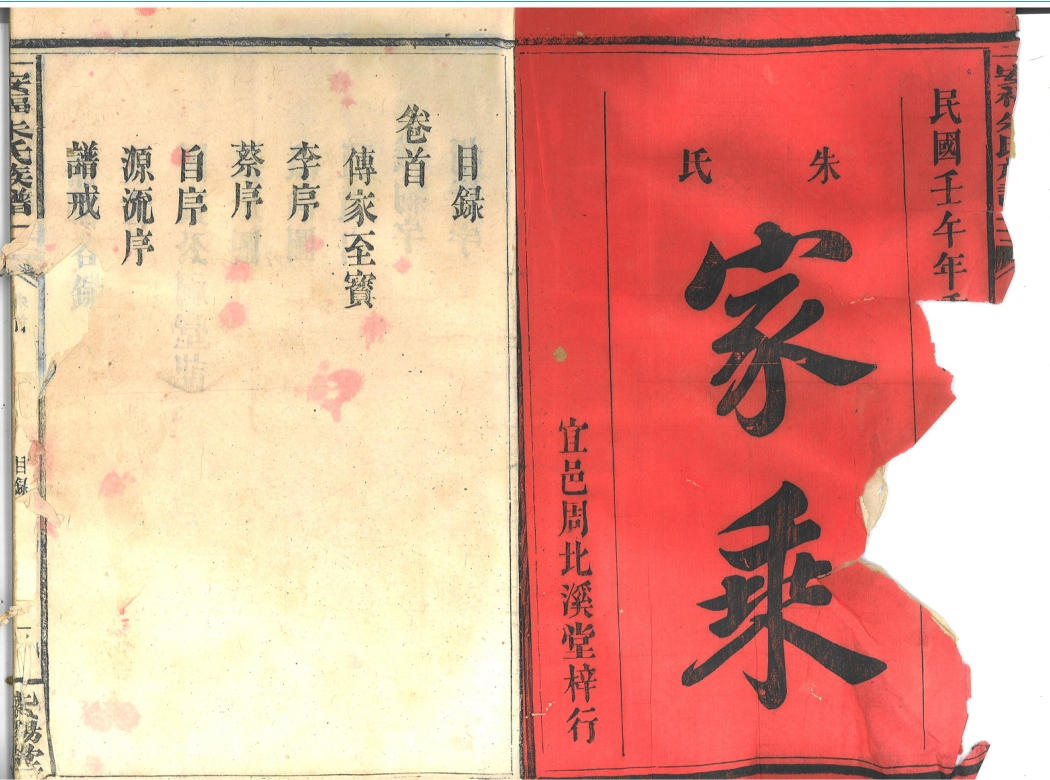 民國壬午年
朱氏
家乘
宜邑周北溪堂梓行
目錄
卷首
傳家至寶
李序
蔡序
自序
源流序
譜戒
安福朱氏族譜
目錄
一
紫陽堂